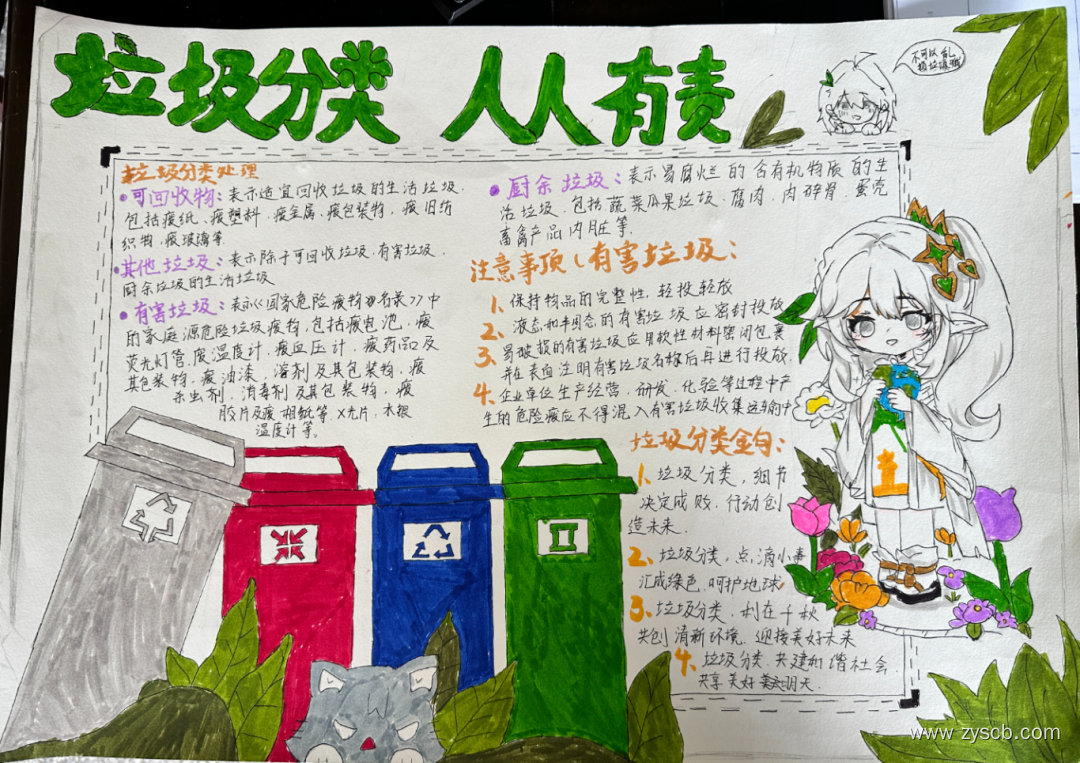 垃圾分类 人人有责
不可以乱
扔垃圾哦
垃圾分类处理
可回收物:表示适宜回收垃圾的生活垃圾.
包括废纸.废塑料.废金属.废包装物,废旧纺
织物.废玻璃等
其他垃圾:表示除于可回收垃圾.有害垃圾.
厨余垃圾的生活垃圾
有害垃圾:表示《国家危险废物名录》中
的家庭源危险垃圾废物,包括废电池,废
荧光灯管.废温度计,废血压计,废药品及
其包装物,废油漆.溶剂及其包装物,废
杀虫剂.消毒剂及其包装物,废
胶片及废相纸等 X光片.水银
温度计等。
厨余垃圾:表示易腐烂的含有机物质的生
活垃圾.包括蔬菜瓜果垃圾.腐肉.肉碎骨.蛋壳
畜禽产品内脏等.
注意事项(有害垃圾:
1.保持物品的完整性,轻投轻放
2.液态和半固态的有害垃圾应密封投放
3.易破损的有害垃圾应用软性材料密闭包裹
并在表面注明有害垃圾名称后再进行投放.
4.企业单位生产经营.研发.化验等过程中产
生的危险废应不得混入有害垃圾收集运输中
垃圾分类金句:
1.垃圾分类,细节
决定成败,行动创
造未来.
2.垃圾分类,点滴小事
汇成绿色,呵护地球
3.垃圾分类,利在千秋
共创清新环境.迎接美好未来
4.垃圾分类.共建和谐社会
共享美好明天.
www.zyscb.com